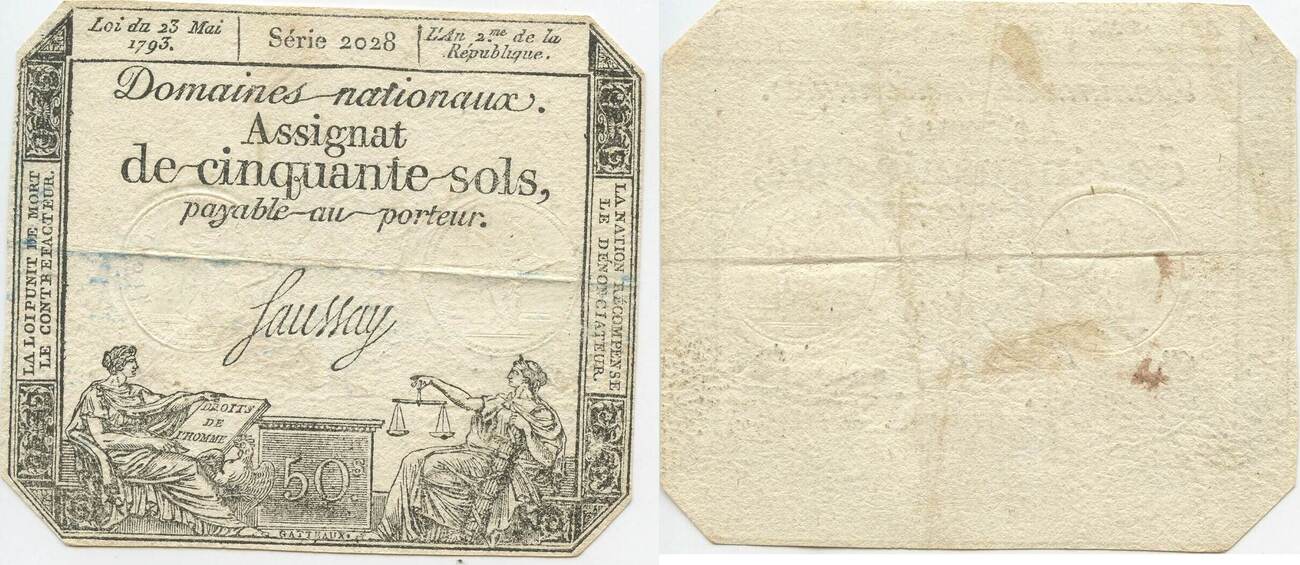 Loi du 23 Mai
1793.
Série 2028
L'An 2.me de la
République.
Domaines nationaux.
Assignat
de cinquante sols,
payable au porteur.
LA LOI PUNIT DE MORT
LE CONTREFACTEUR.
LA NATION RÉCOMPENSE
LE DÉNONCIATEUR.
Saussay
DROITS
DE
L'HOMME
50s
GATTEAUX